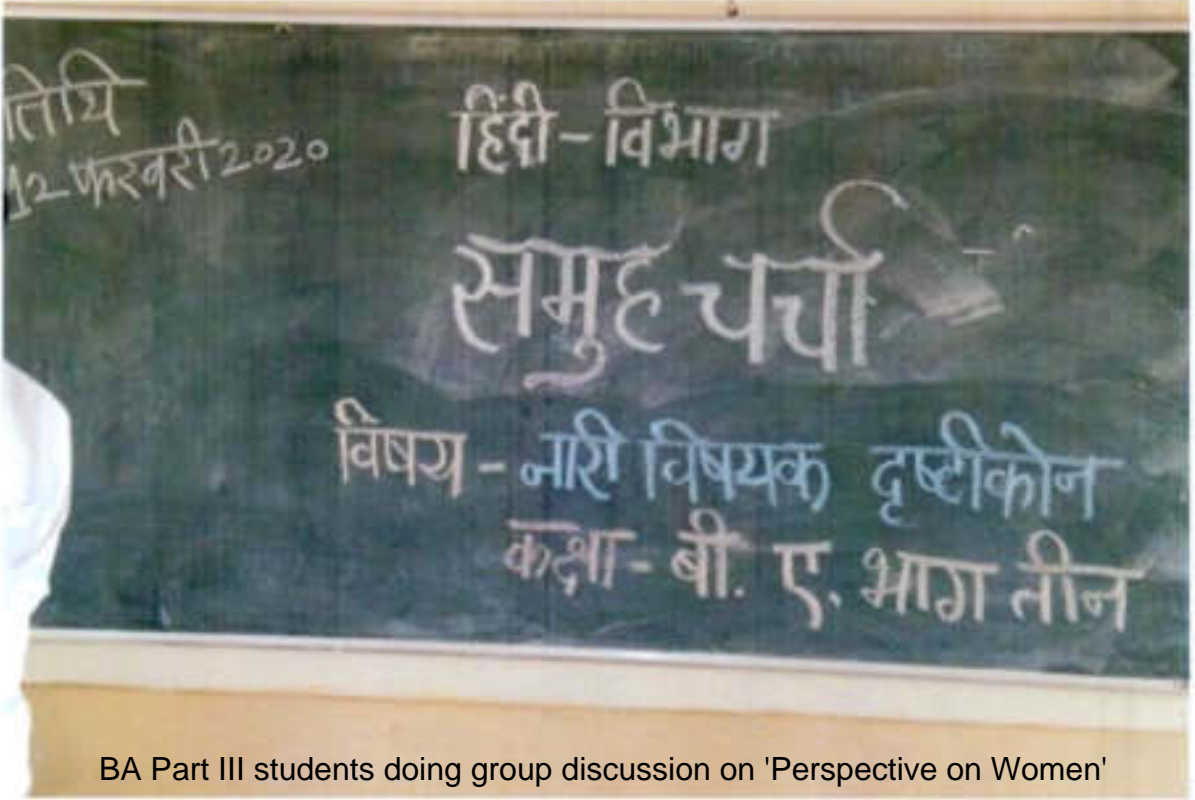 तिथि
12 फरवरी 2020
हिंदी - विभाग
समुह चर्चा
विषय - नारी विषयक दृष्टीकोन
कक्षा - बी. ए. भाग तीन
BA Part III students doing group discussion on 'Perspective on Women'